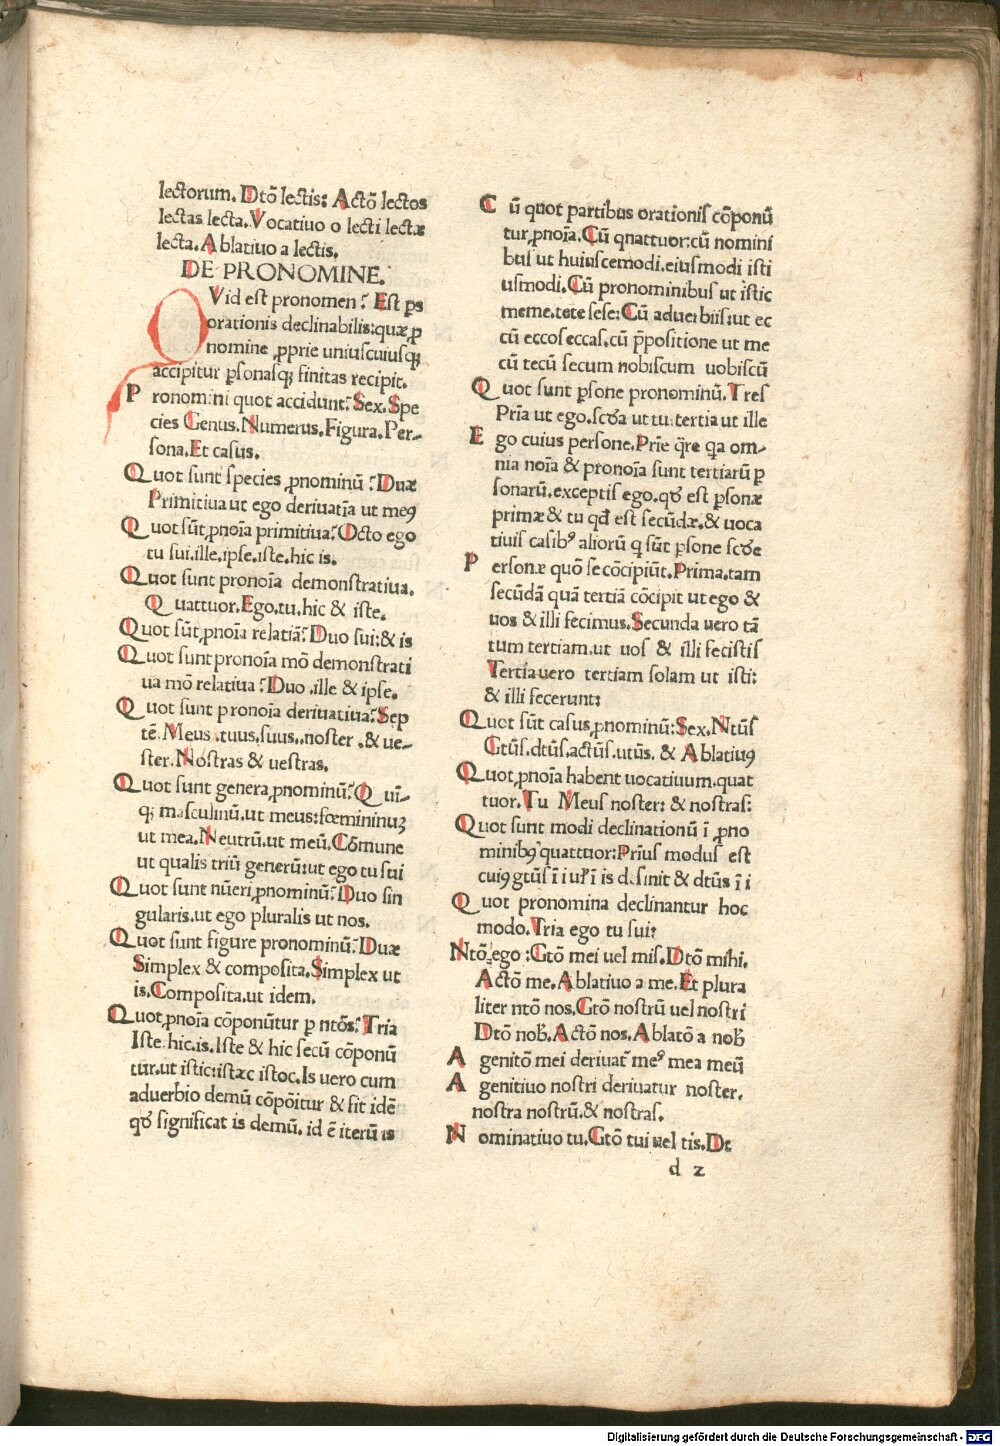 8
lectorum. Dtõ lectis: Actõ lectos
lectas lecta. Vocatiuo o lecti lectæ
lecta. Ablatiuo a lectis.
DE PRONOMINE.
QVid est pronomen? Est ps
orationis declinabilis: quæ ꝓ
nomine ꝓprie uniuscuiusqꝫ
accipitur ꝑsonasqꝫ finitas recipit.
Pronomini quot accidunt? Sex. Spe
cies Genus. Numerus. Figura. Per-
sona. Et casus.
Quot sunt species ꝓnominũ? Duæ
Primitiua ut ego deriuatĩa ut meꝰ
Quot sũt ꝓnoĩa primitiua? Octo ego
tu sui. ille. ipse. iste. hic is.
Quot sunt pronoĩa demonstratiua.
Quattuor. Ego. tu. hic & iste.
Quot sũt ꝓnoĩa relatiã? Duo sui: & is
Quot sunt pronoĩa mõ demonstrati
ua mõ relatiua? Duo .ille & ipse.
Quot sunt pronoĩa deriuatiua? Sep
tẽ. Meus .tuus. suus. .noster .& ue-
ster. Nostras & uestras.
Quot sunt genera ꝓnominũ? Quĩ-
qꝫ masculinũ. ut meus: fœmininuꝫ
ut mea. Neutrũ. ut meũ. Cõmune
ut qualis triũ generũ: ut ego tu sui
Quot sunt nũeri ꝓnominũ? Duo sin
gularis. ut ego pluralis ut nos.
Quot sunt figure pronominũ? Duæ
Simplex & composita. Simplex ut
is. Composita. ut idem.
Quot ꝓnoĩa cõponũtur ꝑ ntõs? Tria
Iste. hic. is. Iste & hic secũ cõponũ
tur. ut istic: istæc istoc. Is uero cum
aduerbio demũ cõpõitur & fit idẽ
qđ significat is demũ. id ẽ iterũ is
Cũ quot partibus orationis cõponũ
tur ꝓnoĩa. Cũ qnattuor: cũ nomini
bus ut huiuscemodi. eiusmodi isti
usmodi. Cũ pronominibus ut istic
meme. tete sese: Cũ aduerbiis: ut ec
cũ eccos eccas. cũ p̃positione ut me
cũ tecũ secum nobiscum uobiscũ
Quot sunt ꝑsone pronominũ. Tres
Prĩa ut ego. scđa ut tu: tertia ut ille
Ego cuius persone. Prĩe q̃re qa om-
nia noĩa & pronoĩa sunt tertiarũ ꝑ
sonarũ. exceptis ego. qđ est ꝑsonæ
primæ & tu qđ est secũdæ. & uoca
tiuis casibꝰ aliorũ q sũt ꝑsone scđe
Personæ quõ se cõcipiũt. Prima. tam
secũdã quã tertiã cõcipit ut ego &
uos & illi fecimus. Secunda uero tã
tum tertiam. ut uos & illi fecistis
Tertia uero tertiam solam ut isti:
& illi fecerunt:
Quot sũt casus ꝓnominũ: Sex. Ntũs
Gtũs. dtũs. actũs. utũs. & Ablatiuꝰ
Quot ꝓnoĩa habent uocatiuum. quat
tuor. Tu Meus noster: & nostras:
Quot sunt modi declinationũ ĩ ꝓno
minibꝰ quattuor: Prĩus modus est
cuiꝰ gtũs ĩ i ul' ĩ is desinit & dtũs ĩ i
Quot pronomina declinantur hoc
modo. Tria ego tu sui:
Ntõ ego: Gtõ mei uel mis. Dtõ mihi.
Actõ me. Ablatiuo a me. Et plura
liter ntõ nos. Gtõ nostrũ uel nostri
Dtõ nob̃. Actõ nos. Ablatõ a nob̃
A genitõ mei deriuat̃ meꝰ mea meũ
A genitiuo nostri deriuatur noster.
nostra nostrũ. & nostras.
Nominatiuo tu. Gtõ tui uel tis. Dt
d 2
Digitalisierung gefördert durch die Deutsche Forschungsgemeinschaft - DFG